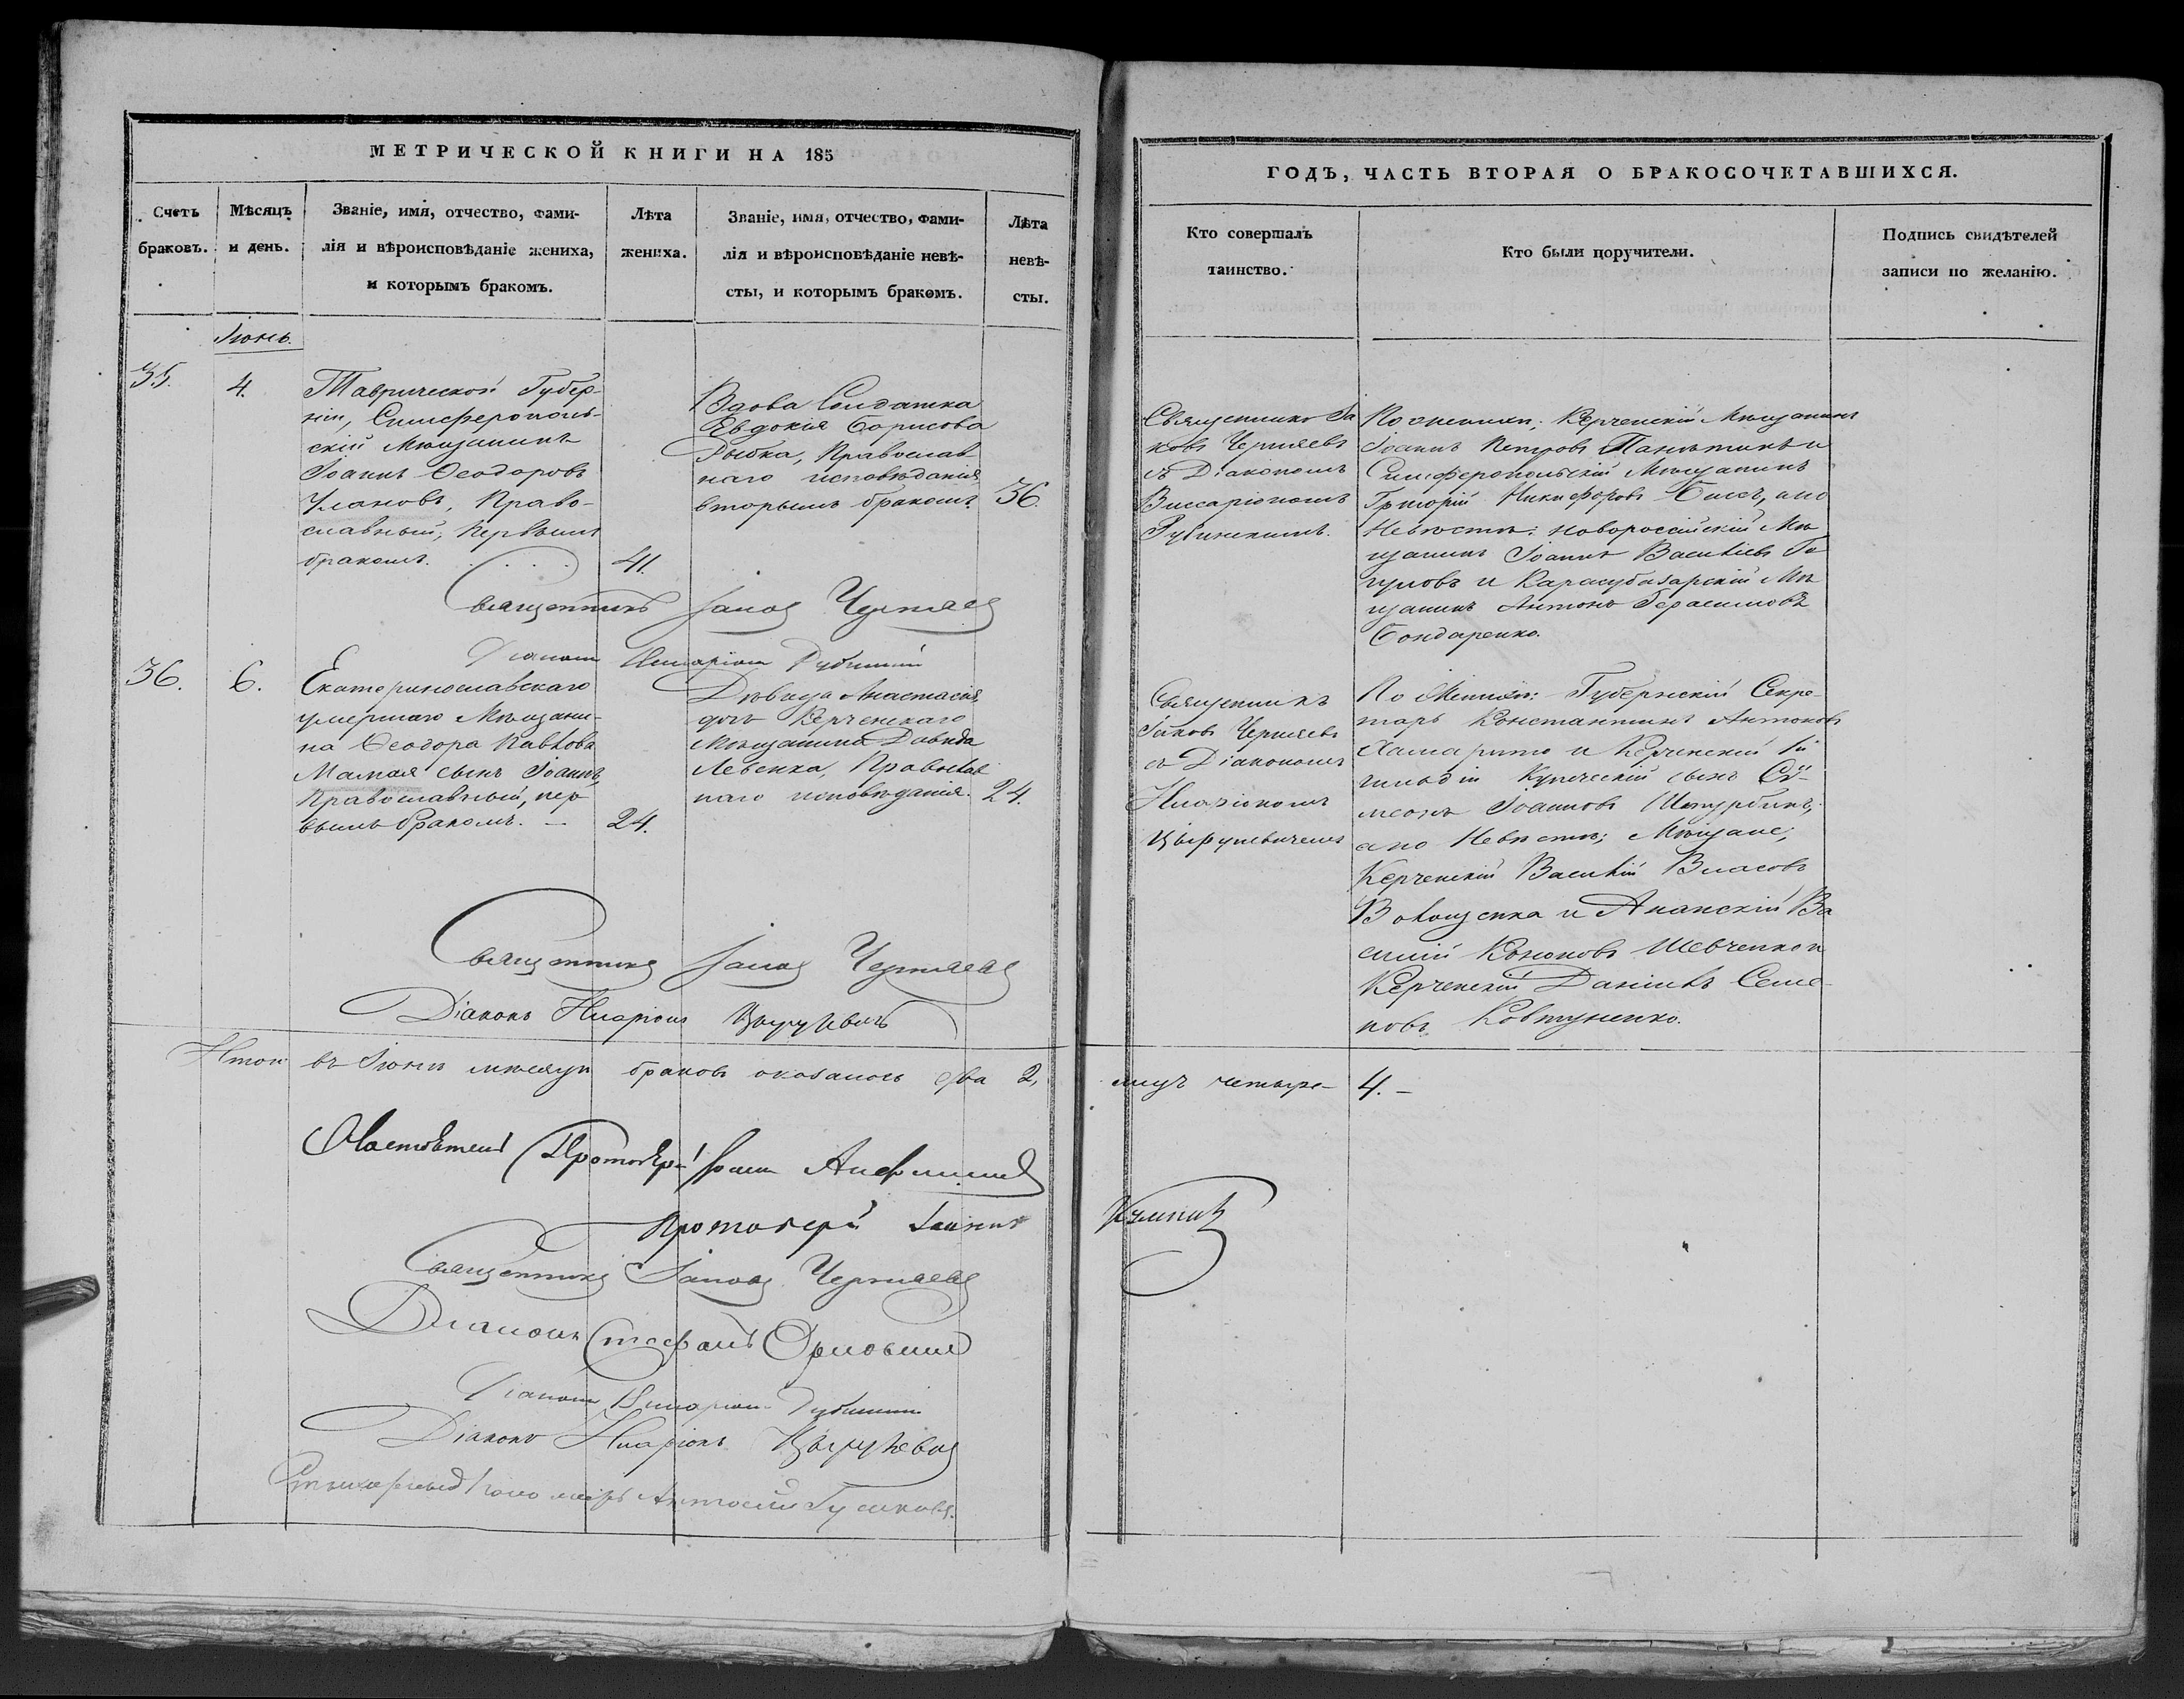 МЕТРИЧЕСКОЙ КНИГИ НА 185
Счетъ браковъ.
Мѣсяцъ и день.
Званіе, имя, отчество, фами-
лія и вѣроисповѣданіе жениха,
и которымъ бракомъ.
Лѣта
жениха.
Званіе, имя, отчество, фами-
лія и вѣроисповѣданіе невѣ-
сты, и которымъ бракомъ.
Лѣта
невѣ-
сты.
Іюнь.
35.
4.
Таврической Губер-
ніи, Симферополь-
скій Мѣщанинъ
Іоаннъ Ѳеодоровъ
Улановъ, Право-
славный, первымъ
бракомъ.
41.
Вдова Солдатка
Евдокія Борисова
Рыбка, Православ
наго исповѣданія
вторымъ бракомъ.
36.
Священникъ Іаковъ Черняевъ
Діаконъ Виссаріонъ
36.
6.
Екатеринославскаго
умершаго Мѣщани-
на Ѳеодора Павлова
Мамая сынъ Іоаннъ,
Православный, пер
вымъ бракомъ.
24.
Дѣвица Анастасія,
дочь Керченскаго
Мѣщанина Давида
Левенка, Православ
наго исповѣданія.
24.
Священникъ Іаковъ Черняевъ
Діаконъ Иларіонъ Цырулевичъ
Итого въ Іюнѣ мѣсяцѣ браковъ оказалось два 2,
Настоятель Протоіерей Іоаннъ
Протоіерей Іоаннъ
Священникъ Іаковъ Черняевъ
Діаконъ Стефанъ Орловскій
Діаконъ Виссаріонъ
Діаконъ Иларіонъ Цырулевичъ
Стихарный Пономарь Антоній Гусаковъ.
ГОДЪ, ЧАСТЬ ВТОРАЯ О БРАКОСОЧЕТАВШИХСЯ.
Кто совершалъ
таинство.
Кто были поручители.
Подпись свидѣтелей
записи по желанію.
Священникъ Іа
ковъ Черняевъ
съ Діакономъ
Виссаріономъ
По женихѣ: Керченскій Мѣщанинъ
Іоаннъ Петровъ и
Симферопольскій Мѣщанинъ
Григорій Никифоровъ а по
Невѣстѣ: Новороссійскій Мѣ
щанинъ Іоаннъ Васильевъ
и Карасубазарскій Мѣ
щанинъ Антонъ Герасимовъ
Бондаренко.
Священникъ
Іаковъ Черняевъ
съ Діакономъ
Иларіономъ
Цырулевичемъ
По Женихѣ: Губернскій Секре-
тарь Константинъ Антоновъ
и Керченскій
гильдіи Купеческій сынъ Сѵ-
меонъ Іоанновъ
а по Невѣстѣ; Мѣщане;
Керченскій Василій Власовъ
Волощенка и Анапскій Ва
силій Кононовъ Шевченко и
Керченскій Даніилъ Семе-
новъ Ковтуненко.
лицъ четыре – 4. –